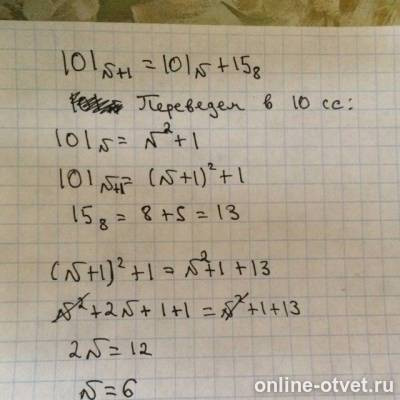 101ₙ₊₁ = 101ₙ + 15₈
Переведем в 10 сс:
101ₙ = n² + 1
101ₙ₊₁ = (n+1)² + 1
15₈ = 8 + 5 = 13
(n+1)² + 1 = n² + 1 + 13
n² + 2n + 1 + 1 = n² + 1 + 13
2n = 12
n = 6
online-otvet.ru